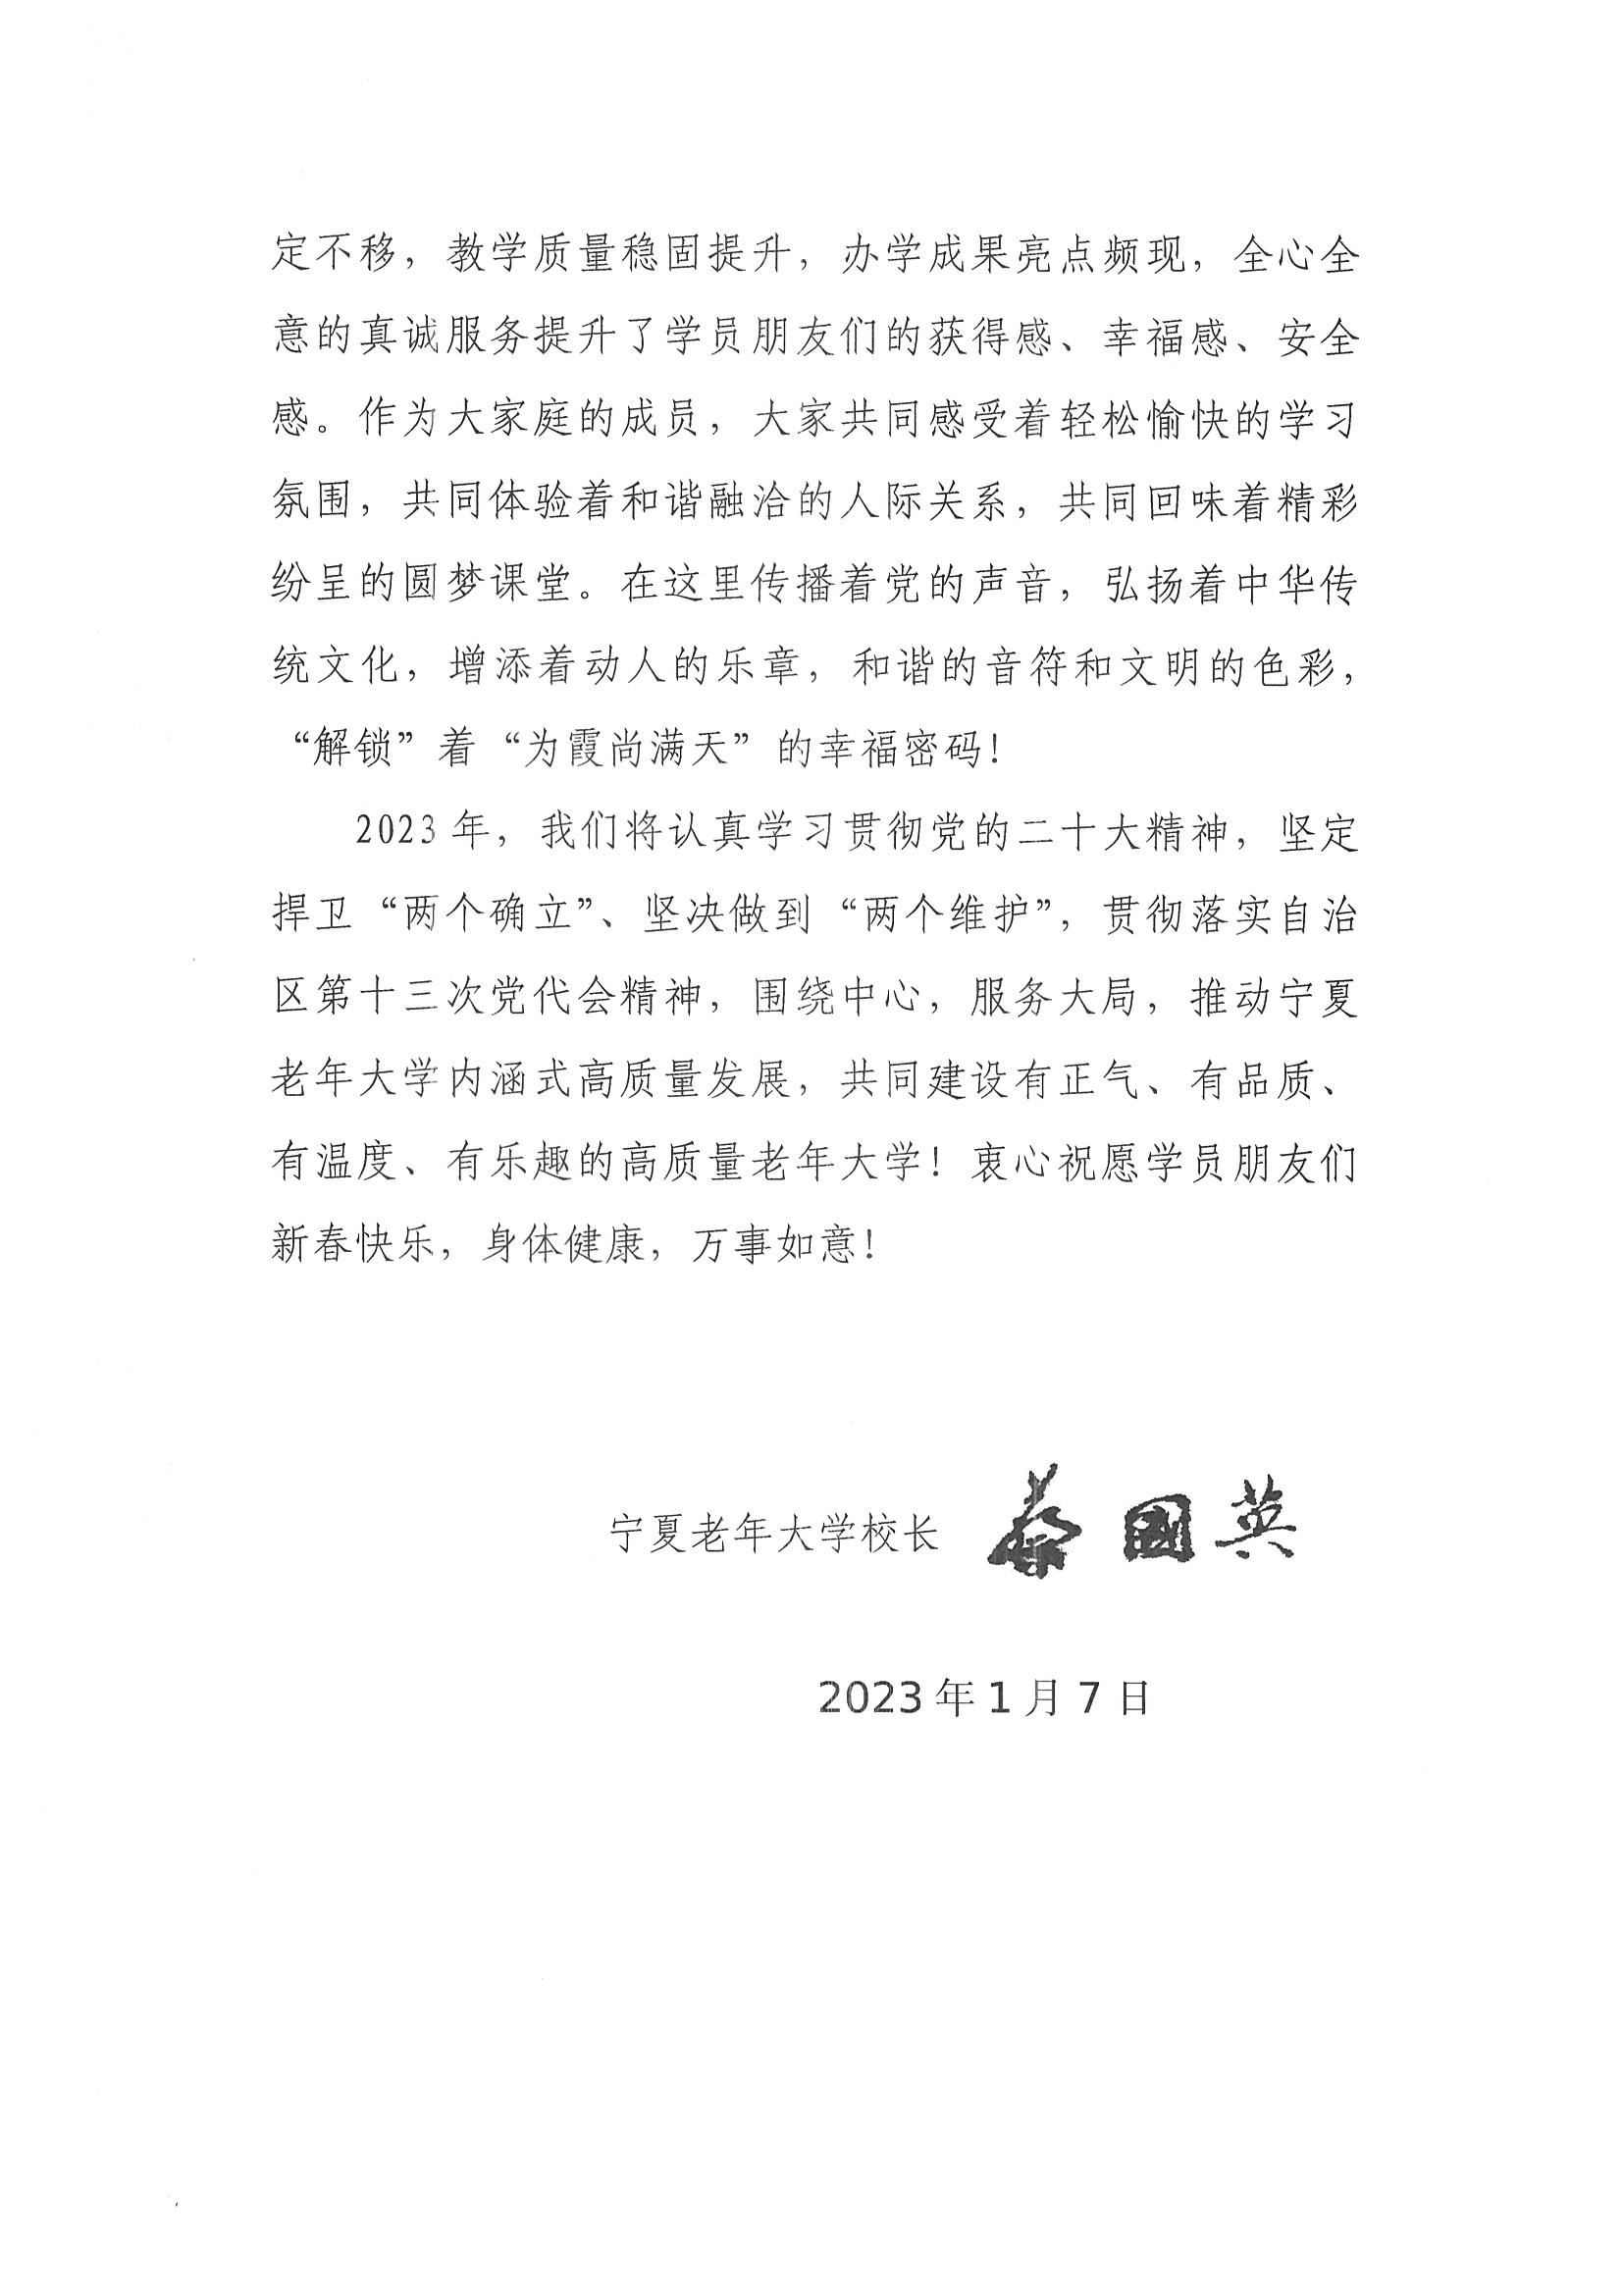 定不移，教学质量稳固提升，办学成果亮点频现，全心全
意的真诚服务提升了学员朋友们的获得感、幸福感、安全
感。作为大家庭的成员，大家共同感受着轻松愉快的学习
氛围，共同体验着和谐融洽的人际关系，共同回味着精彩
纷呈的圆梦课堂。在这里传播着党的声音，弘扬着中华传
统文化，增添着动人的乐章，和谐的音符和文明的色彩，
“解锁”着“为霞尚满天”的幸福密码！
2023年，我们将认真学习贯彻党的二十大精神，坚定
捍卫“两个确立”、坚决做到“两个维护”，贯彻落实自治
区第十三次党代会精神，围绕中心，服务大局，推动宁夏
老年大学内涵式高质量发展，共同建设有正气、有品质、
有温度、有乐趣的高质量老年大学！衷心祝愿学员朋友们
新春快乐，身体健康，万事如意！
宁夏老年大学校长 蔡國英
2023年1月7日